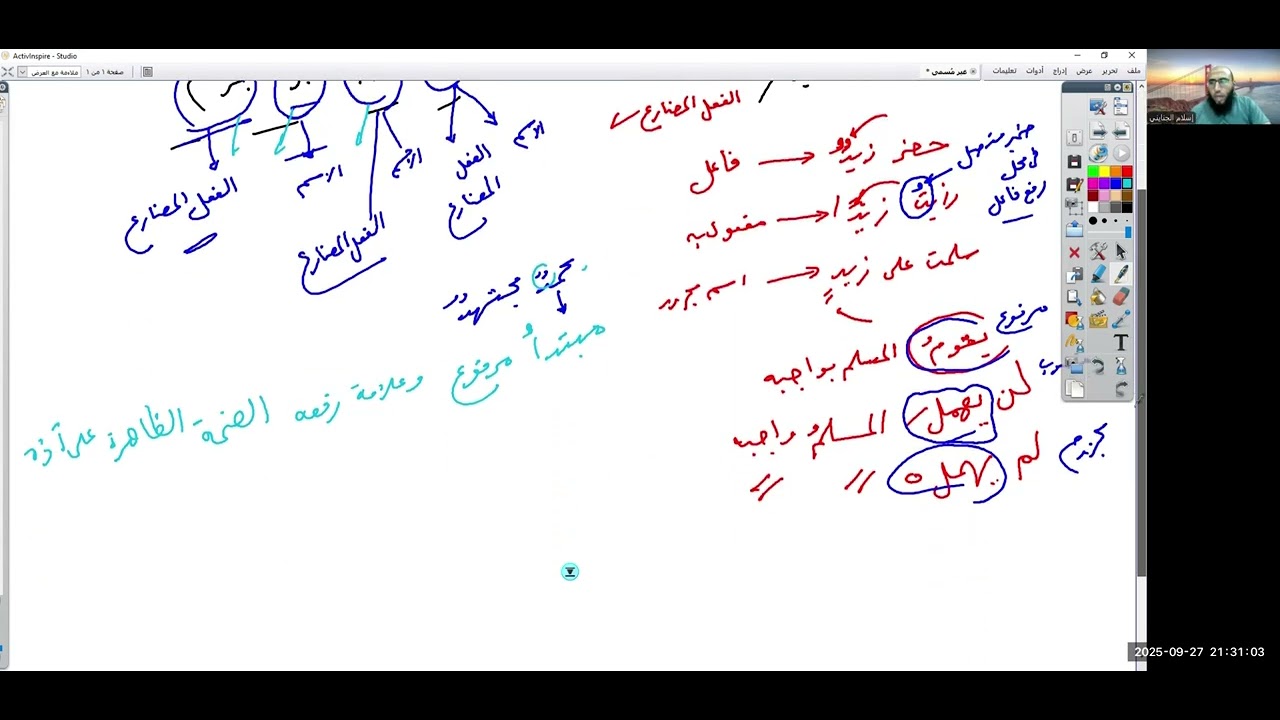 ActivInspire - Studio
ملف تحرير عرض إدراج أدوات تعليمات
عبر مُسمى *
صفحة ١ من ١
ملاءمة مع العرض
إسلام الجنايني
الفعل المضارع
حضر زيدٌ → فاعل
رأيتُ زيدًا → مفعول به
ضمير متصل
في محل
رفع فاعل
سلمت على زيدٍ → اسم مجرور
يقومُ المسلم بواجبه
مرفوع
لن يهملَ المسلمُ واجبه
لم يهملْ " "
الاسم
الفعل
المضارع
الاسم
الفعل المضارع
الاسم
الفعل المضارع
محمدٌ مجتهدٌ
مبتدأ مرفوع وعلامة رفعه الضمة الظاهرة على آخره
T
2025-09-27 21:31:03